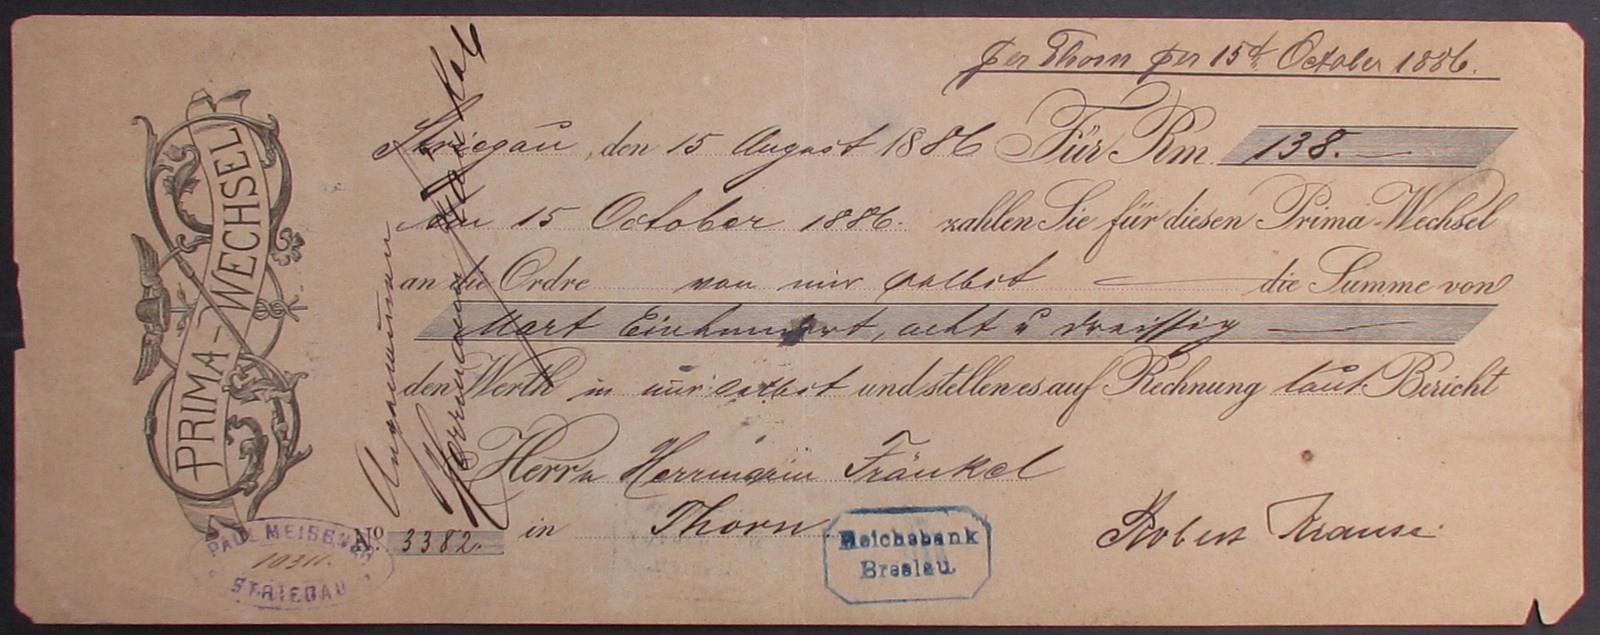 per Thorn per 15t. October 1886.
Striegau, den 15 August 1886 Für Rm. 138.—
Am 15 October 1886. zahlen Sie für diesen Prima-Wechsel
an die Ordre von mir selbst — die Summe von
Mark Einhundert, acht u dreissig —
den Werth in mir selbst und stellen es auf Rechnung laut Bericht
Herrn Herrmann Fränkel
No. 3382. in Thorn
Robert Krause
PRIMA-WECHSEL
Angenommen
Herrmann Fränkel
PAUL MEISSNER
STRIEGAU
Reichsbank
Breslau.